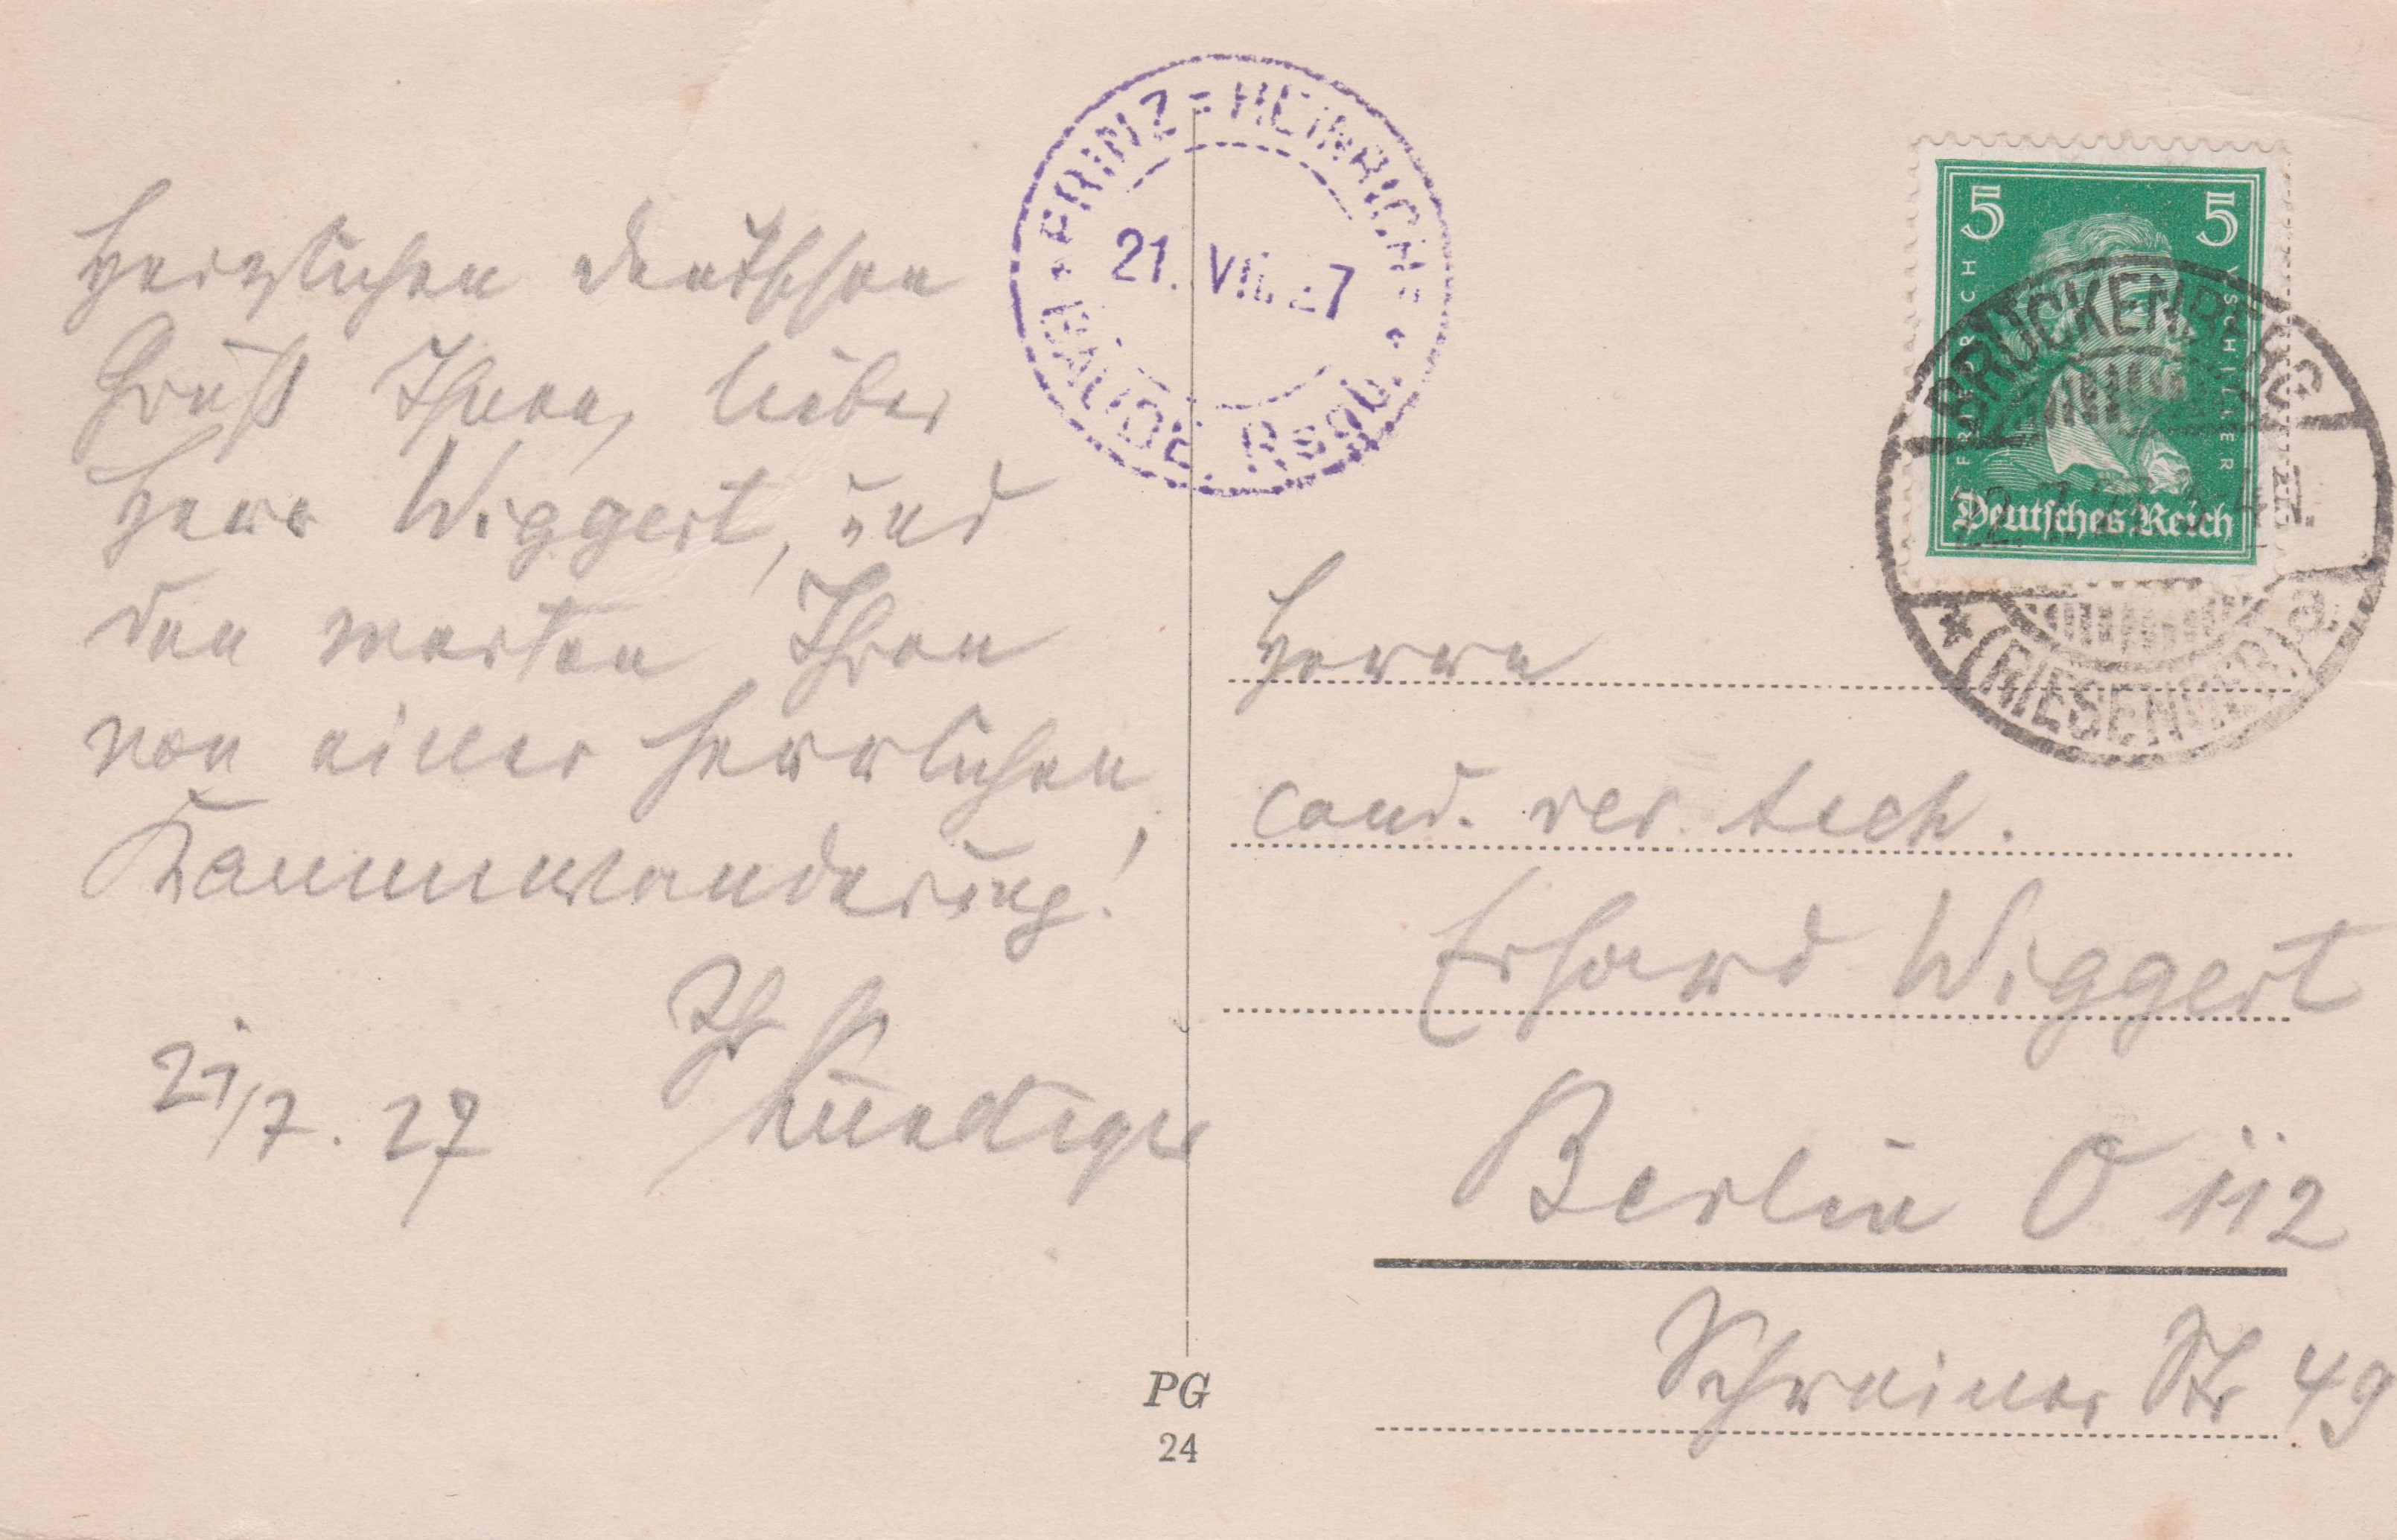 Herzlichen deutschen
Gruß Ihnen, lieber
Herr Wiggert, und
den werten Ihren
von einer herrlichen
Kammwanderung!
Ihr
21/7. 27
PRINZ-HEINRICH-
BAUDE. Rsgb.
21. VII. 27
5 5
FRIEDRICH V SCHILLER
Deutsches Reich
BRÜCKENBERG
(RIESENGEB.) a
Herrn
cand. rer. tech.
Erhard Wiggert
Berlin O 112
Schreiner Str 49
PG
24